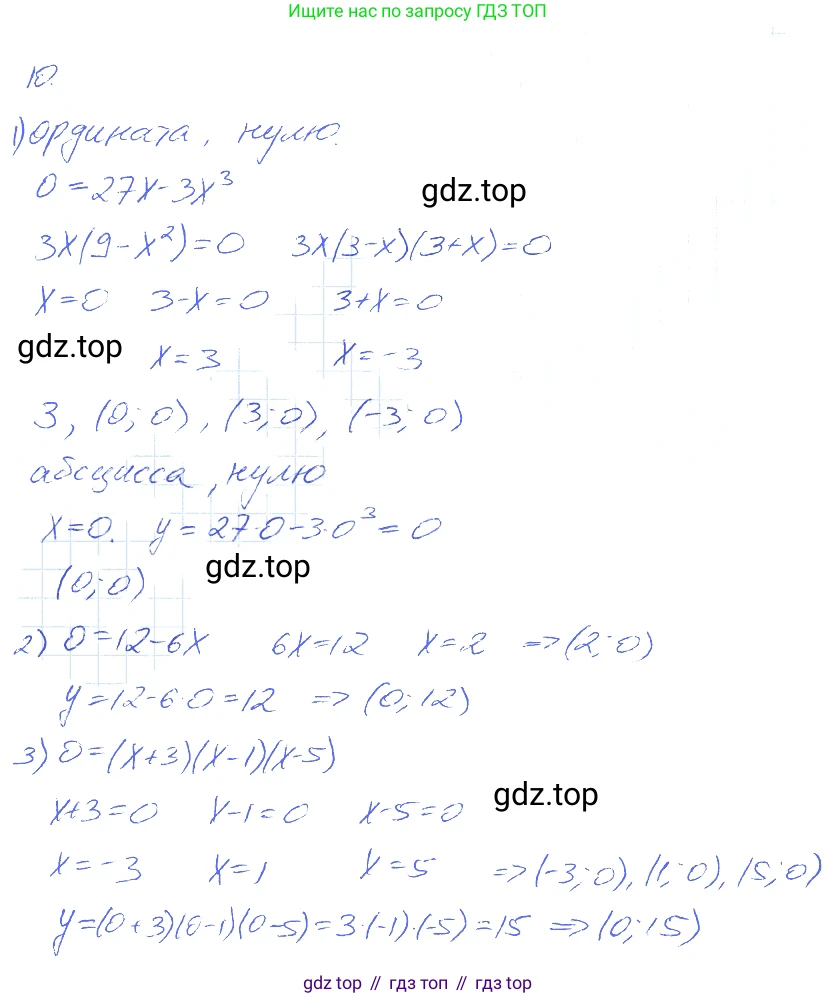 Ищите нас по запросу ГДЗ ТОП
10.
1) ордината, нулю.
0=27x-3x³
gdz.top
3x(9-x²)=0 3x(3-x)(3+x)=0
x=0 3-x=0 3+x=0
gdz.top
x=3 x=-3
3, (0; 0), (3; 0), (-3; 0)
абсцисса, нулю
x=0. y=27·0-3·0³=0
gdz.top
(0; 0)
2) 0=12-6x 6x=12 x=2 => (2; 0)
y=12-6·0=12 => (0; 12)
3) 0=(x+3)(x-1)(x-5)
x+3=0 x-1=0 x-5=0
gdz.top
x=-3 x=1 x=5 => (-3; 0), (1; 0), (5; 0)
y=(0+3)(0-1)(0-5)=3·(-1)·(-5)=15 => (0; 15)
gdz top // гдз топ // gdz top